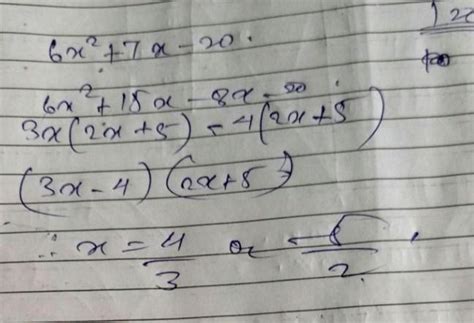 6x² + 7x - 20.
6x² + 15x - 8x - 20
3x(2x + 5) - 4(2x + 5)
(3x - 4)(2x + 5)
∴ x = 4/3 or -5/2.